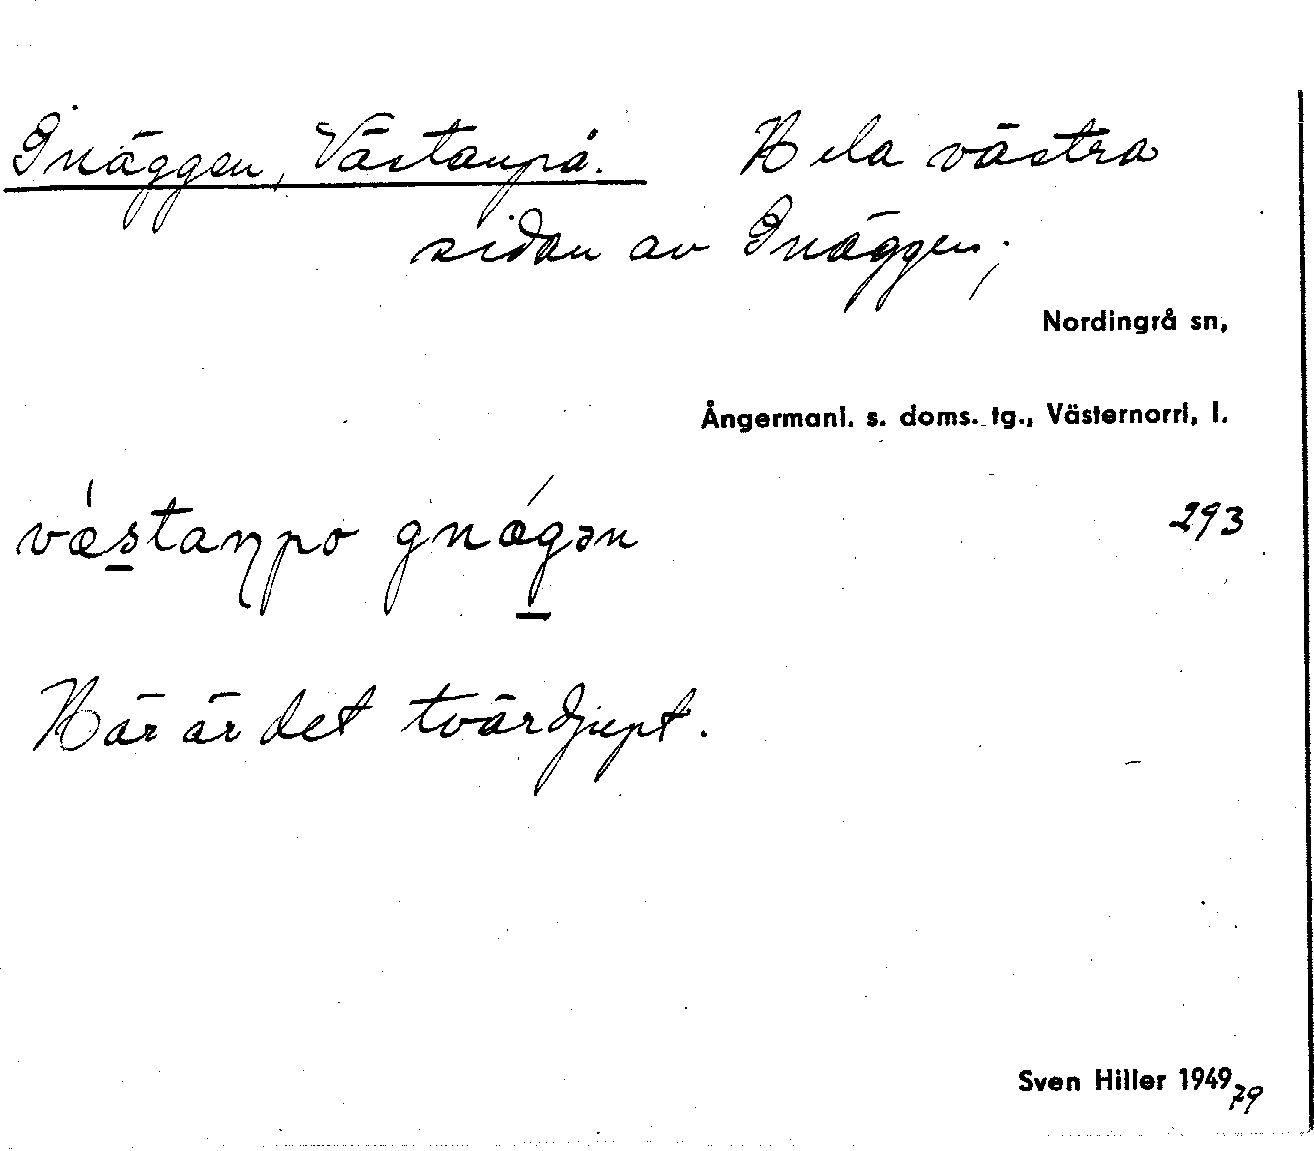 Gnäggen, Västanpå. Hela västra
sidan av Gnäggen;
Nordingrå sn,
Ångermanl. s. doms. tg., Västernorrl. l.
vǽs̲taŋpo gnǽg̲ən
293
Här är det tvärdjupt.
Sven Hiller 1949
79